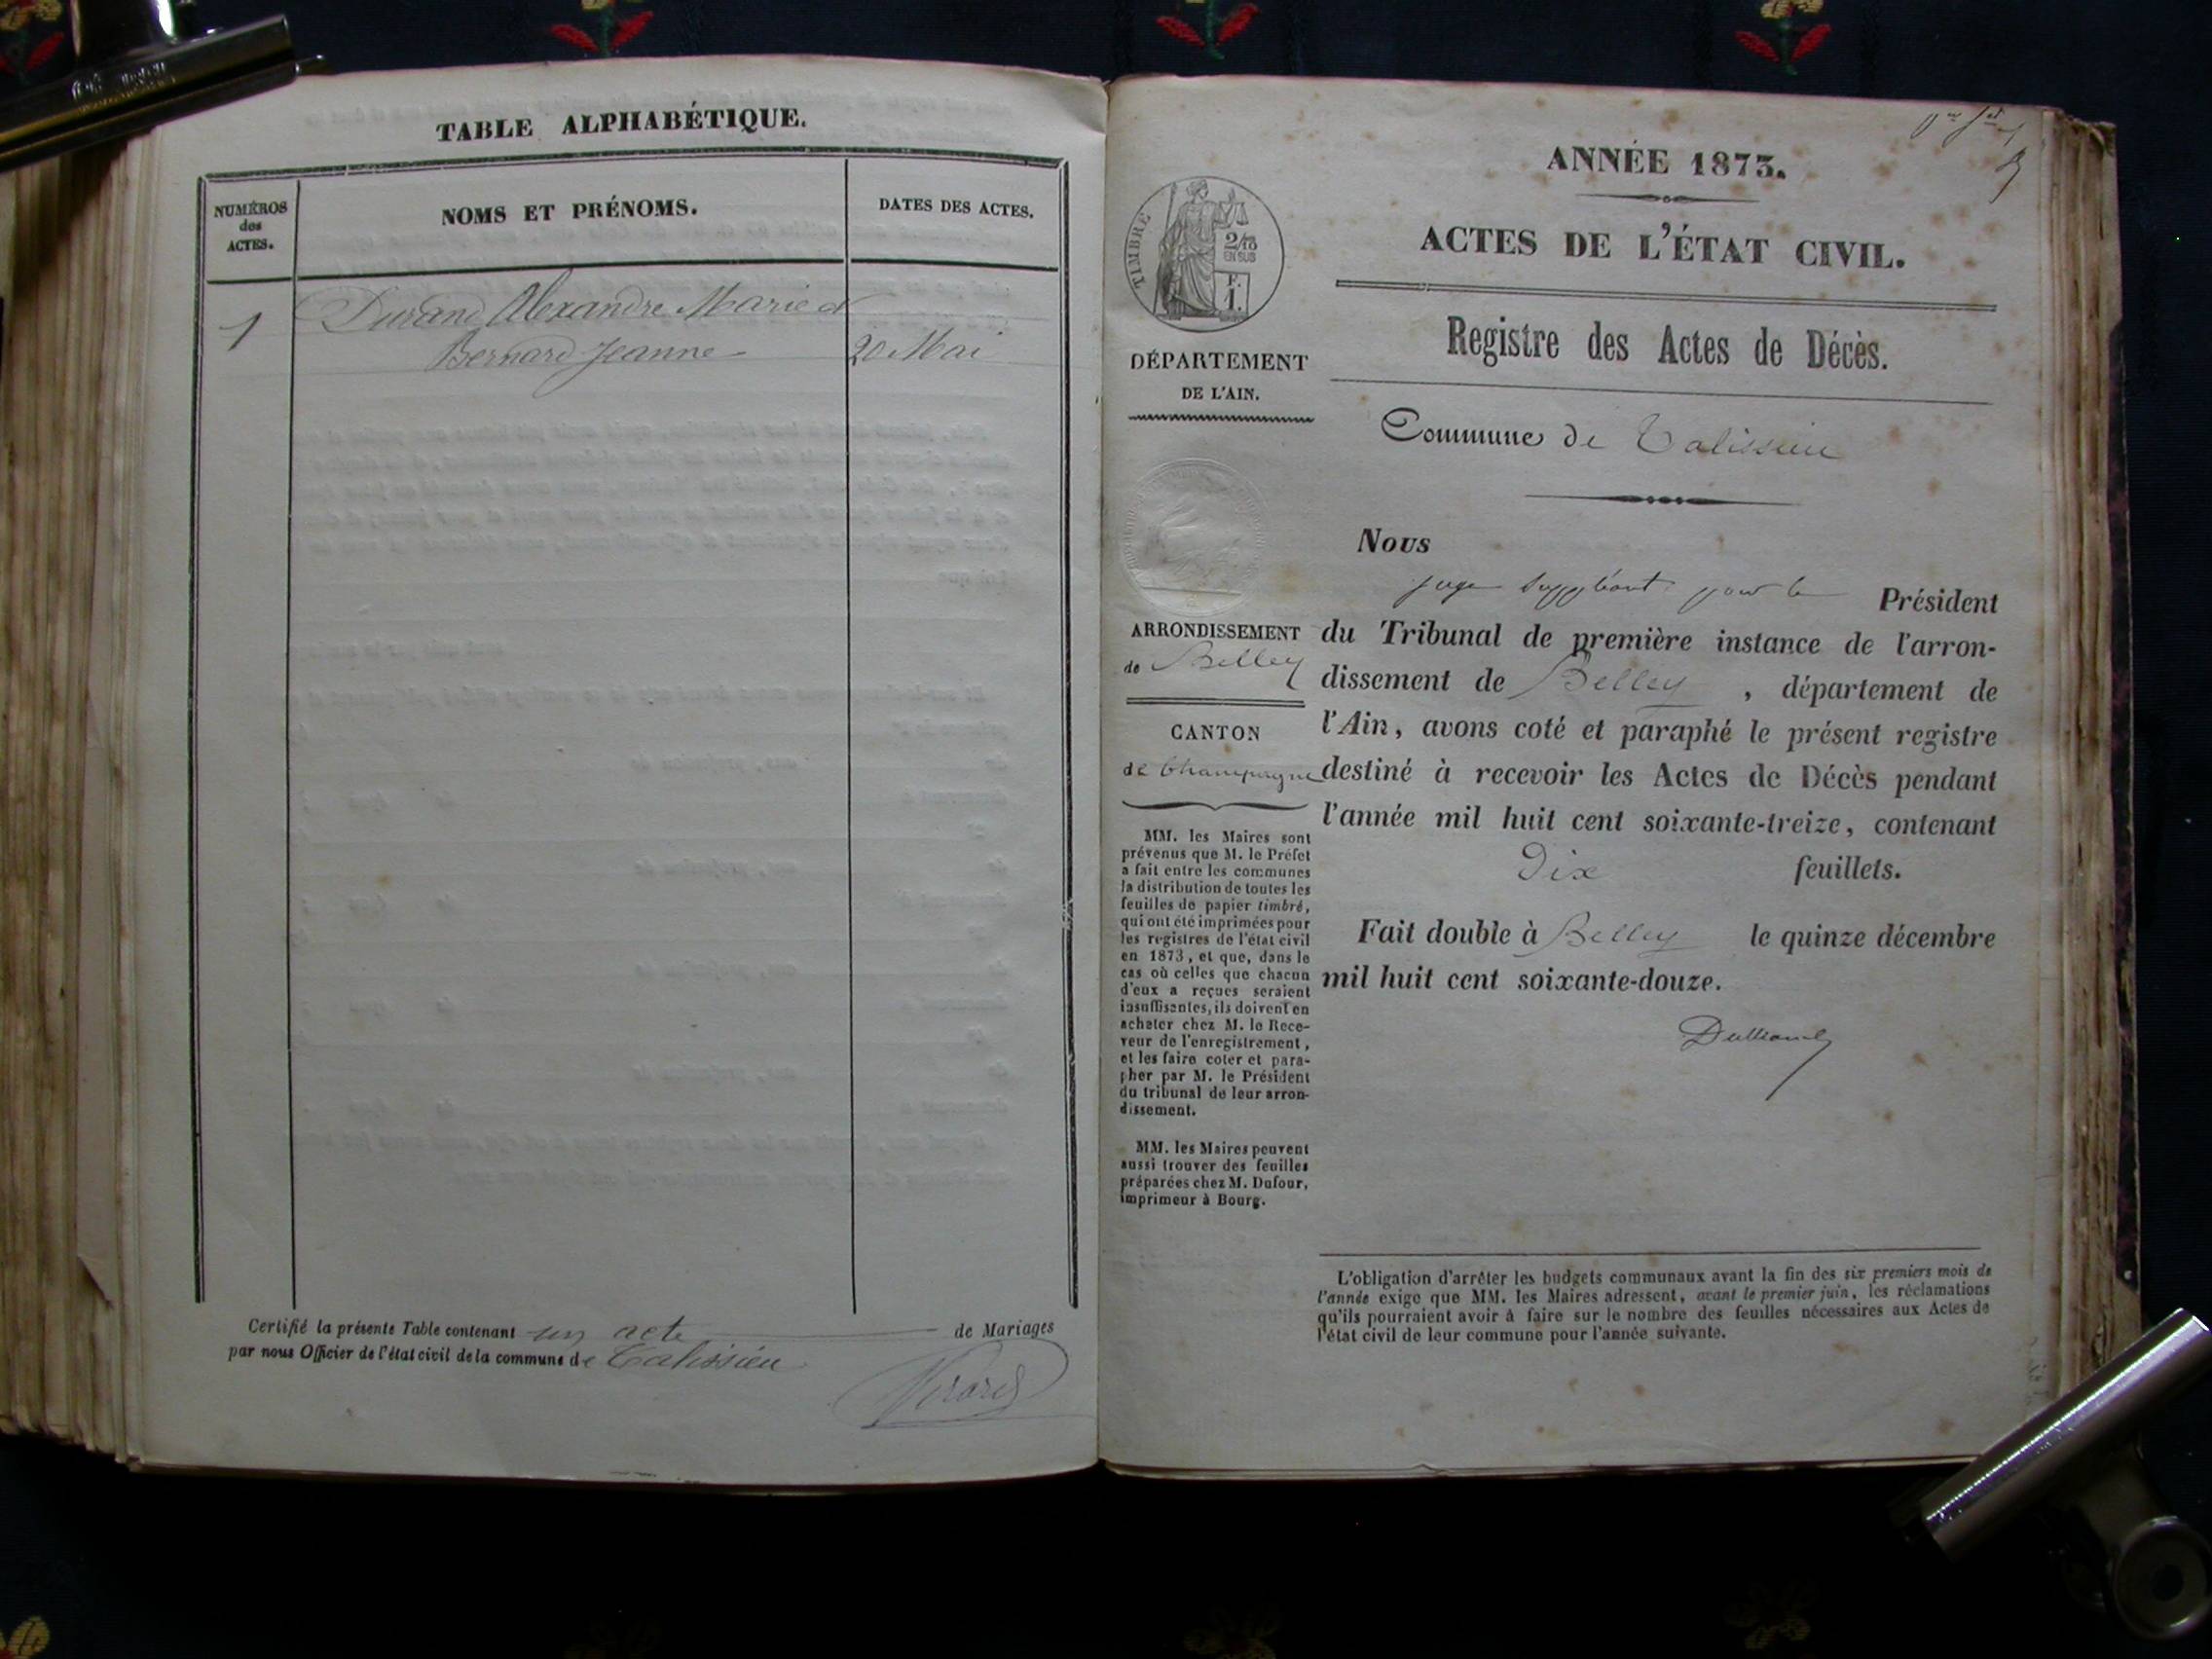 TABLE ALPHABÉTIQUE.
NUMÉROS
des
ACTES.
NOMS ET PRÉNOMS.
DATES DES ACTES.
1
Durand Alexandre Marie et
Bernard Jeanne
20 Mai
Certifié la présente Table contenant un acte de Mariages
par nous Officier de l'état civil de la commune de Talissieu
ANNÉE 1873.
ACTES DE L'ÉTAT CIVIL.
Registre des Actes de Décès.
TIMBRE
2/10
EN SUS
F.
1.
DÉPARTEMENT
DE L'AIN.
ARRONDISSEMENT
de Belley
CANTON
de Champagne
MM. les Maires sont
prévenus que M. le Préfet
a fait entre les communes
la distribution de toutes les
feuilles de papier timbré,
qui ont été imprimées pour
les registres de l'état civil
en 1873, et que, dans le
cas où celles que chacun
d'eux a reçues seraient
insuffisantes, ils doivent en
acheter chez M. le Rece-
veur de l'enregistrement,
et les faire coter et para-
pher par M. le Président
du tribunal de leur arron-
dissement.
MM. les Maires peuvent
aussi trouver des feuilles
préparées chez M. Dufour,
imprimeur à Bourg.
Commune de Talissieu
Nous
juge suppléant pour le Président
du Tribunal de première instance de l'arron-
dissement de Belley, département de
l'Ain, avons coté et paraphé le présent registre
destiné à recevoir les Actes de Décès pendant
l'année mil huit cent soixante-treize, contenant
Dix feuillets.
Fait double à Belley le quinze décembre
mil huit cent soixante-douze.
L'obligation d'arrêter les budgets communaux avant la fin des six premiers mois de
l'année exige que MM. les Maires adressent, avant le premier juin, les réclamations
qu'ils pourraient avoir à faire sur le nombre des feuilles nécessaires aux Actes de
l'état civil de leur commune pour l'année suivante.